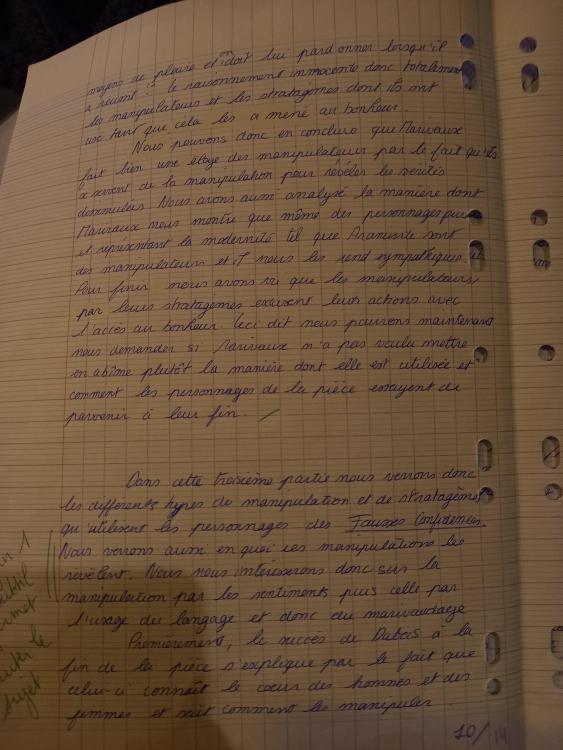 moyens de pleure et on doit lui pardonner lorsqu'il
a réussi": le raisonnement innocente donc totalement
les manipulateurs et les stratagèmes dont ils ont
usé tant que cela les a mené au bonheur.
Nous pouvons donc en conclure que Marivaux
fait bien une éloge des manipulateurs par le fait qu'ils
se servent de la manipulation pour révéler les vérités
dissimulées. Nous avons aussi analysé la manière dont
Marivaux nous montre que même des personnages purs
et représentant la modernité tel que Araminte sont
des manipulateurs et nous les rend sympathiques.
Pour finir nous avons vu que les manipulateurs,
par leurs stratagèmes excusent leurs actions avec
l'accès au bonheur. Ceci dit nous pouvons maintenant
nous demander si Marivaux n'a pas voulu mettre
en abîme plutôt la manière dont elle est utilisée et
comment les personnages de la pièce essayent de
parvenir à leur fin.
Dans cette troisième partie nous verrons donc
les différents types de manipulation et de stratagèmes
qu'utilisent les personnages des Fausses Confidences.
Nous verrons aussi en quoi ces manipulations les
révèlent. Nous nous intéresserons donc sur la
manipulation par les sentiments puis celle par
l'usage du langage et donc du marivaudage
Premièrement, le succès de Dubois à la
fin de la pièce s'explique par le fait que
celui-ci connaît le cœur des hommes et des
femmes et sait comment les manipuler.
sujet
10/14